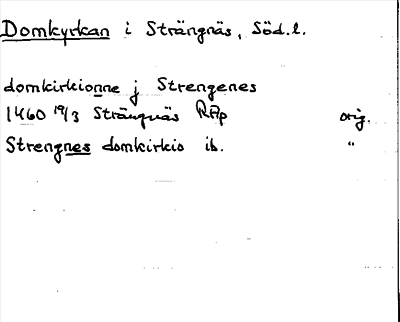 Domkyrkan i Strängnäs, Söd.l.
domkirkionne j Strengenes
1460 19/3 Strängnäs RAp orig.
Strengnes domkirkio ib. "